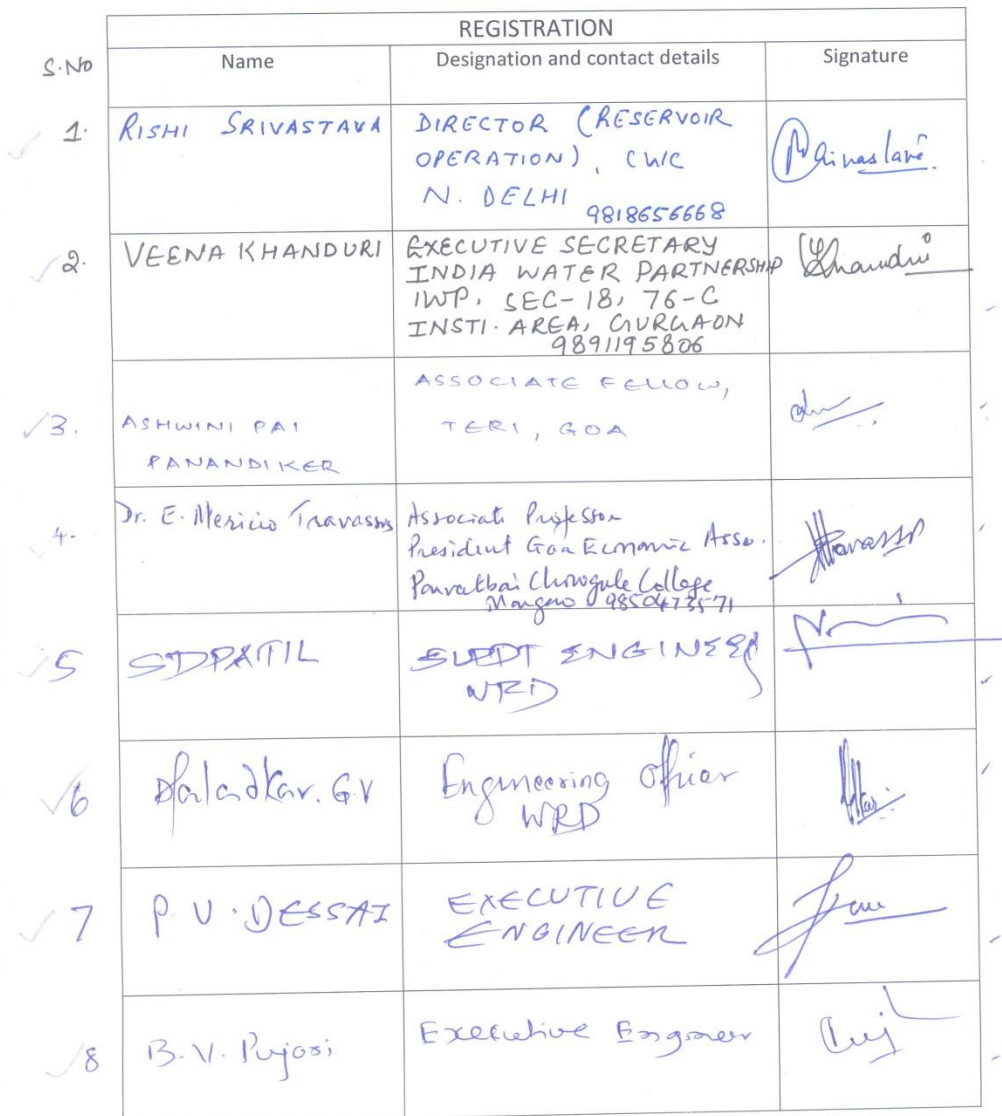 REGISTRATION
S.No Name Designation and contact details Signature
1. RISHI SRIVASTAVA DIRECTOR (RESERVOIR
OPERATION), CWC
N. DELHI
9818656668
2. VEENA KHANDURI EXECUTIVE SECRETARY
INDIA WATER PARTNERSHIP
IWP, SEC-18, 76-C
INSTI. AREA, GURGAON
9891195806
3. ASHWINI PAI
PANANDIKER
ASSOCIATE FELLOW,
TERI, GOA
4. Dr. E. Mericio Travassos Associate Professor
President Goa Economic Asso.
Parvatbai Chowgule College
Margao 9850473571
5 SDPATIL SUPDT ENGINEER
WRD
6 G.V Engineering Officer
WRD
7 P.V.DESSAI EXECUTIVE
ENGINEER
8 B.V. Pujari Executive Engineer